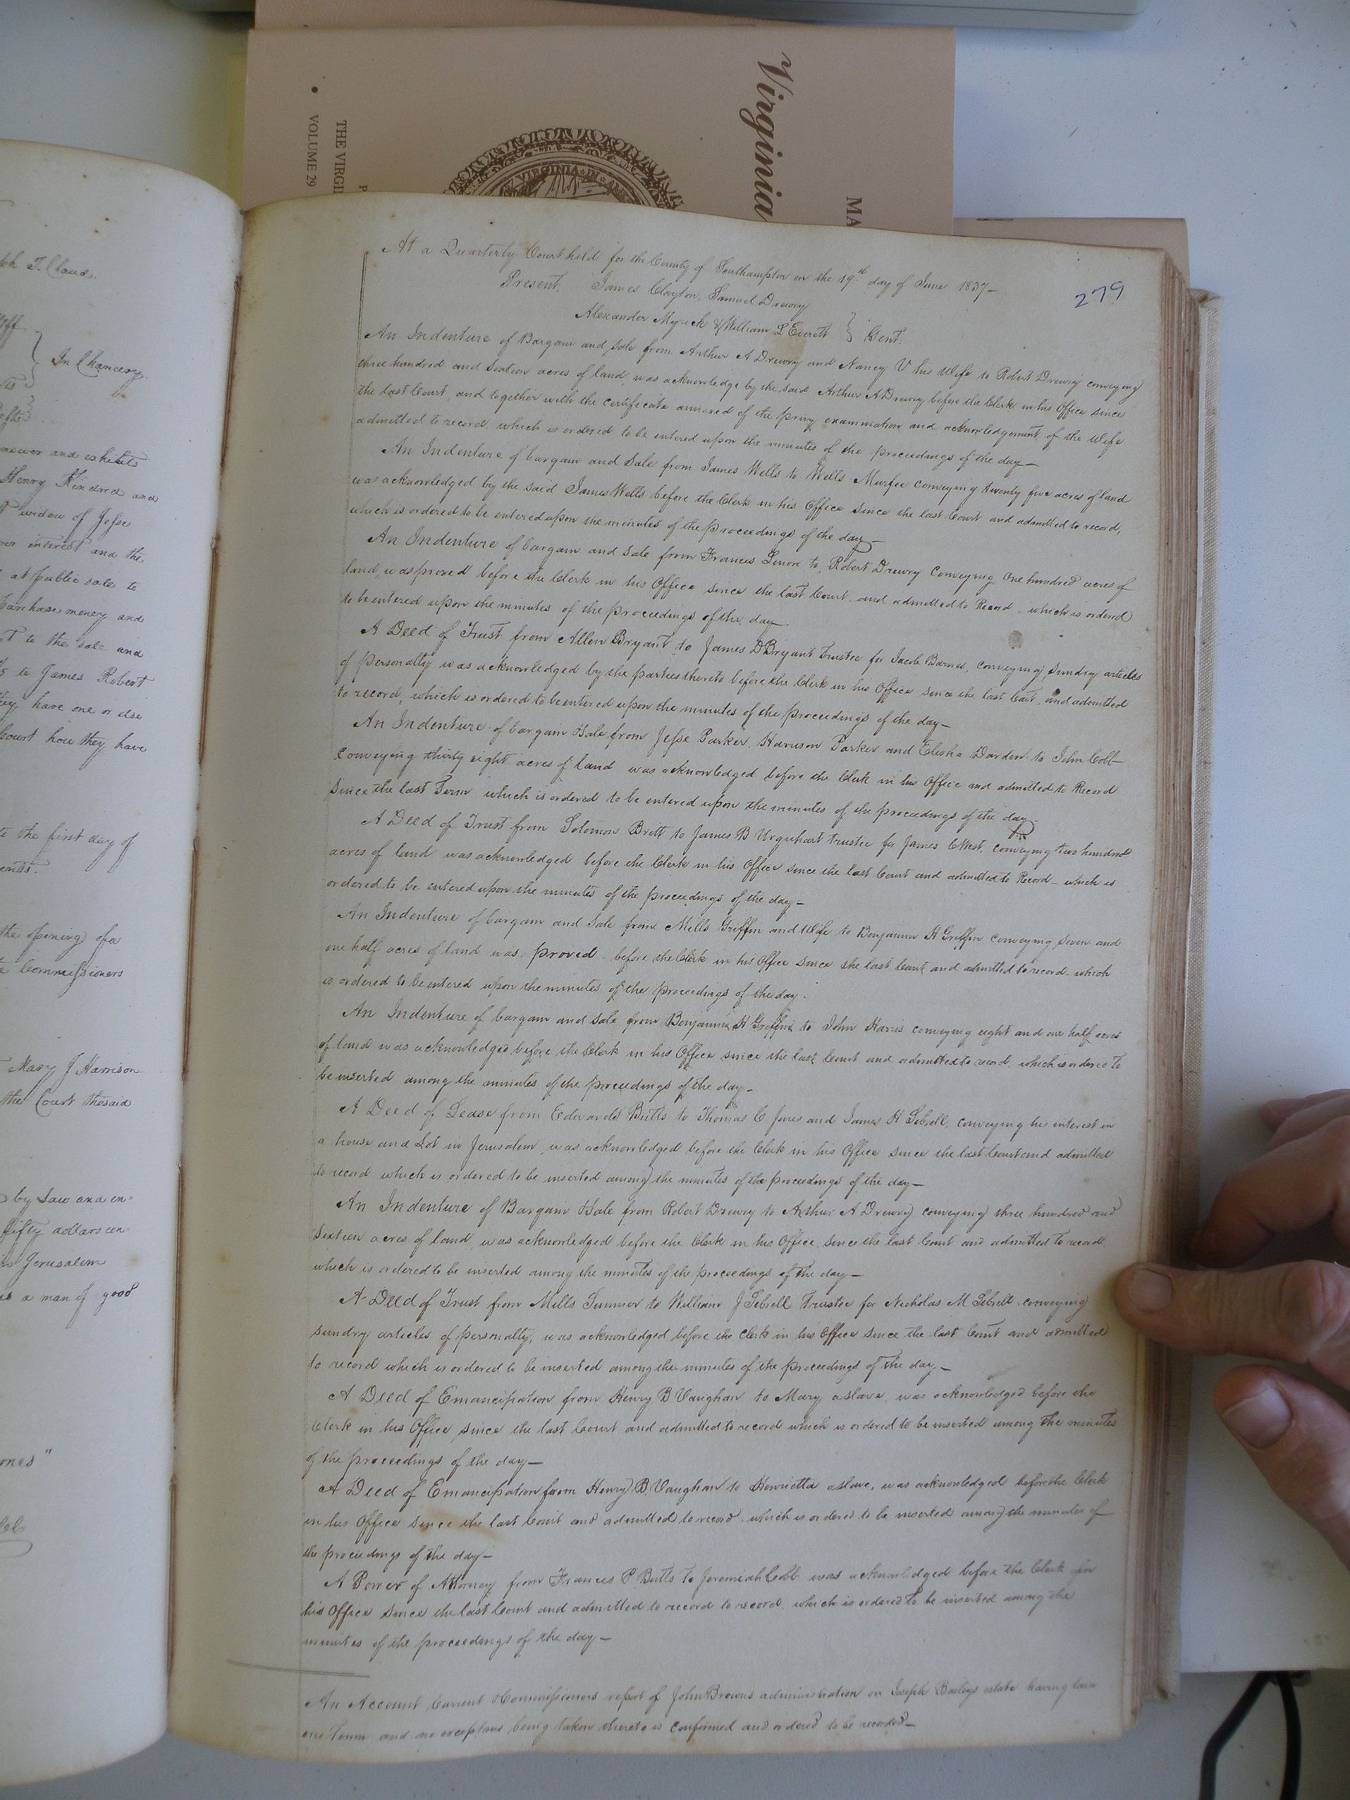 Virginia
MA
THE VIRGI
VOLUME 29
VIRGINIA
279
At a Quarterly Court held for the County of Southampton on the 19th day of June 1837—
Present, James Clayton, Samuel Drewry
Alexander Myrick & William L Everett } Gent.
An Indenture of Bargain and Sale from Arthur A Drewry and Nancy V his Wife to Robert Drewry conveying
three hundred and sixteen acres of land, was acknowledge by the said Arthur A Drewry before the Clerk in his Office since
the last Court, and together with the certificate annexed of the privy examination and acknowledgement of the Wife
admitted to record, which is ordered to be entered upon the minutes of the proceedings of the day—
An Indenture of bargain and Sale from James Wells to Wells Murfee conveying twenty five acres of land
was acknowledged by the said James Wells before the Clerk in his Office since the last Court and admitted to record,
which is ordered to be entered upon the minutes of the proceedings of the day—
An Indenture of bargain and Sale from Francis to Robert Drewry Conveying One hundred acres of
land, was proved before the Clerk in his Office since the last Court and admitted to Record which is ordered
to be entered upon the minutes of the proceedings of the day
A Deed of Trust from Allen Bryant to James D Bryant Trustee for Jacob Barnes, conveying sundry articles
of personalty was acknowledged by the parties thereto before the Clerk in his Office since the last Court and admitted
to record, which is ordered to be entered upon the minutes of the proceedings of the day—
An Indenture of bargain & Sale from Jesse Parker, Harrison Parker and Elisha Darden to John Cobb
Conveying thirty eight acres of land was acknowledged before the Clerk in his Office and admitted to Record
Since the last Term which is ordered to be entered upon the minutes of the proceedings of the day
A Deed of Trust from Solomon Britt to James B Urquhart trustee for James West, conveying two hundred
acres of land was acknowledged before the Clerk in his Office since the last Court and admitted to Record— which is
ordered to be entered upon the minutes of the proceedings of the day—
An Indenture of bargain and Sale from Mills Griffin and Wife to Benjamin H Griffin conveying seven and
one half acres of land was proved before the Clerk in his Office since the last Court and admitted to record which
is ordered to be entered upon the minutes of the proceedings of the day.
An Indenture of bargain and Sale from Benjamin H Griffin to John Harris conveying eight and one half acres
of land was acknowledged before the Clerk in his Office since the last Court and admitted to record which is ordered to
be inserted among the minutes of the proceedings of the day—
A Deed of Lease from Edward Butts to Thomas C Jones and James H Sebrell conveying his interest in
a house and Lot in Jerusalem was acknowledged before the Clerk in his Office since the last Court and admitted
to record which is ordered to be inserted among the minutes of the proceedings of the day—
An Indenture of Bargain & Sale from Robert Drewry to Arthur A Drewry conveying three hundred and
Sixteen acres of land was acknowledged before the Clerk in his Office since the last Court and admitted to record
which is ordered to be inserted among the minutes of the proceedings of the day—
A Deed of Trust from Mills Turner to William J Sebrell Trustee for Nicholas M Sebrell conveying
sundry articles of personalty, was acknowledged before the Clerk in his Office since the last Court and admitted
to record which is ordered to be inserted among the minutes of the proceedings of the day—
A Deed of Emancipation from Henry B Vaughan to Mary a slave, was acknowledged before the
Clerk in his Office since the last Court and admitted to record which is ordered to be inserted among the minutes
of the proceedings of the day—
A Deed of Emancipation from Henry B. Vaughan to Henrietta a slave, was acknowledged before the Clerk
in his Office since the last Court and admitted to record which is ordered to be inserted among the minutes of
the proceedings of the day—
A Power of Attorney from Frances P Butts to Jeremiah Cobb was acknowledged before the Clerk in
his Office since the last Court and admitted to record to record which is ordered to be inserted among the
minutes of the proceedings of the day—
An Account Current & Commissioners report of John Browns administration on Joseph estate having lain
one Term and no exceptions being taken thereto is confirmed and ordered to be recorded—
In Chancery
answer and exhibits
Henry Kindred and
widow of Jesse
interest and the
at public sale to
Purchase money and
to the sale and
to James Robert
they have one or else
Court how they have
the first day of
the opening of a
Commissioners
Mary J Harrison
the Court the said
by Law and en-
fifty dollars
Jerusalem
is a man of good